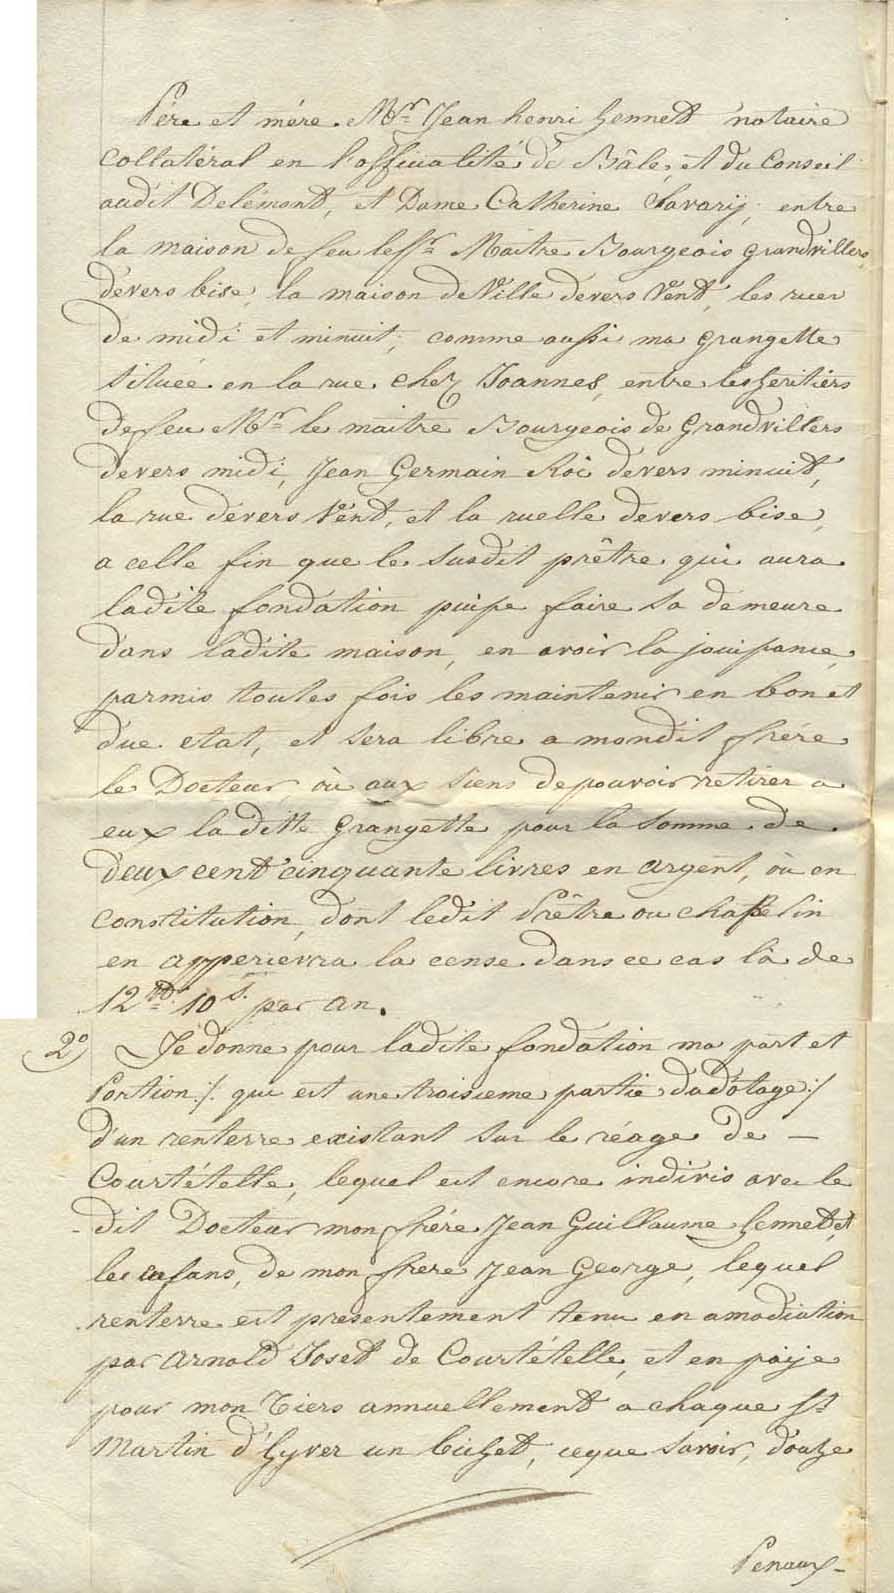 Pére et mére. Mr. Jean henri hennet notaire
Collatéral en l'officialité de Bâle, et du Conseil
audit Delémont, et Dame Catherine Savarÿ, entre
la maison de feu le Sr. Maitre Bourgeois grandvillers,
devers bise, la maison de Ville devers Vent, les rues
de midi et minuit; comme aussi ma grangette
située en la rue chez Joannes, entre les heritiers
de feu Mr. le maitre Bourgeois de Grandvillers
devers midi, Jean Germain Roi devers minuit,
la rue devers Vent, et la ruelle devers bise,
a celle fin que le susdit prêtre qui aura
ladite fondation puisse faire sa demeure
dans ladite maison, en avoir la jouissance,
parmis toutes fois les maintenir en bon et
due etat, et sera libre a mondit frére
le Docteur où aux siens de pouvoir retirer a
eux la ditte Grangette pour la somme de
deux cent cinquante livres en argent, où en
constitution, dont ledit Prêtre ou chapelin
en apperievra la cense dans ce cas là de
12 lb. 10 s. par an.
2° Je donne pour ladite fondation ma part et
Portion ./. qui est une troisieme partie d'adótage ./
d'un renterre existant sur le réage de —
Courtételle, lequel est encore indivis avec le
-dit Docteur mon frére Jean Guillaume hennet, et
les enfans, de mon frere Jean George, lequel
renterre est presentement tenu en amodiation
par Arnold Joset de Courtételle, et en païje
pour mon Tiers annuellement a chaque St
Martin d'hÿver un bichet, ce que savoir, douze
Penaux-